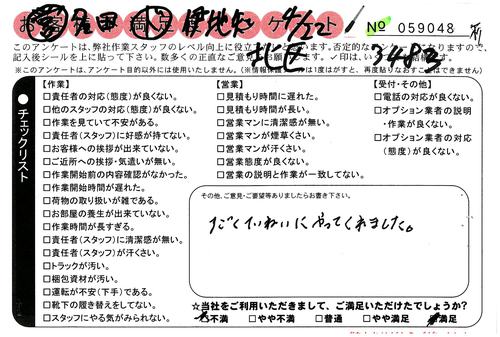 お客様満足アンケート
4/22
北区
7483
№ 059048
このアンケートは、弊社作業スタッフのレベル向上に役立
記入後シールを上に貼って下さい。数多くの正直なご意見
※このアンケートは、アンケート目的以外には使用いたしません。(情報保護シールは1度はがすと、再度貼りなおすことはできません)
チェックリスト
【作業】
□責任者の対応(態度)が良くない。
□他のスタッフの対応(態度)が良くない。
□作業を見ていて不安がある。
□責任者(スタッフ)に好感が持てない。
□お客様への挨拶が出来ていない。
□ご近所への挨拶・気遣いが無い。
□作業開始前の内容確認がなかった。
□作業開始時間が遅れた。
□荷物の取り扱いが雑である。
□お部屋の養生が出来ていない。
□作業時間が長すぎる。
□責任者(スタッフ)に清潔感が無い。
□責任者(スタッフ)が汗くさい。
□トラックが汚い。
□梱包資材が汚い。
□運転が不安(下手)である。
□靴下の履き替えをしてない。
□スタッフにやる気がみられない。
【営業】
□見積もり時間に遅れた。
□見積もり時間が長い。
□営業マンに清潔感が無い。
□営業マンが煙草くさい。
□営業マンが汗くさい。
□営業態度が良くない。
□営業の説明と作業が一致してない。
【受付・その他】
□電話の対応が良くない。
□オプション業者の説明
・作業が良くない。
□オプション業者の対応
(態度)が良くない。
その他、ご意見・ご要望等ありましたらお書き下さい。
ごくていねいにやってくれました。
☆当社をご利用いただきまして、ご満足いただけたでしょうか?
□不満 □やや不満 □普通 □やや満足 満足